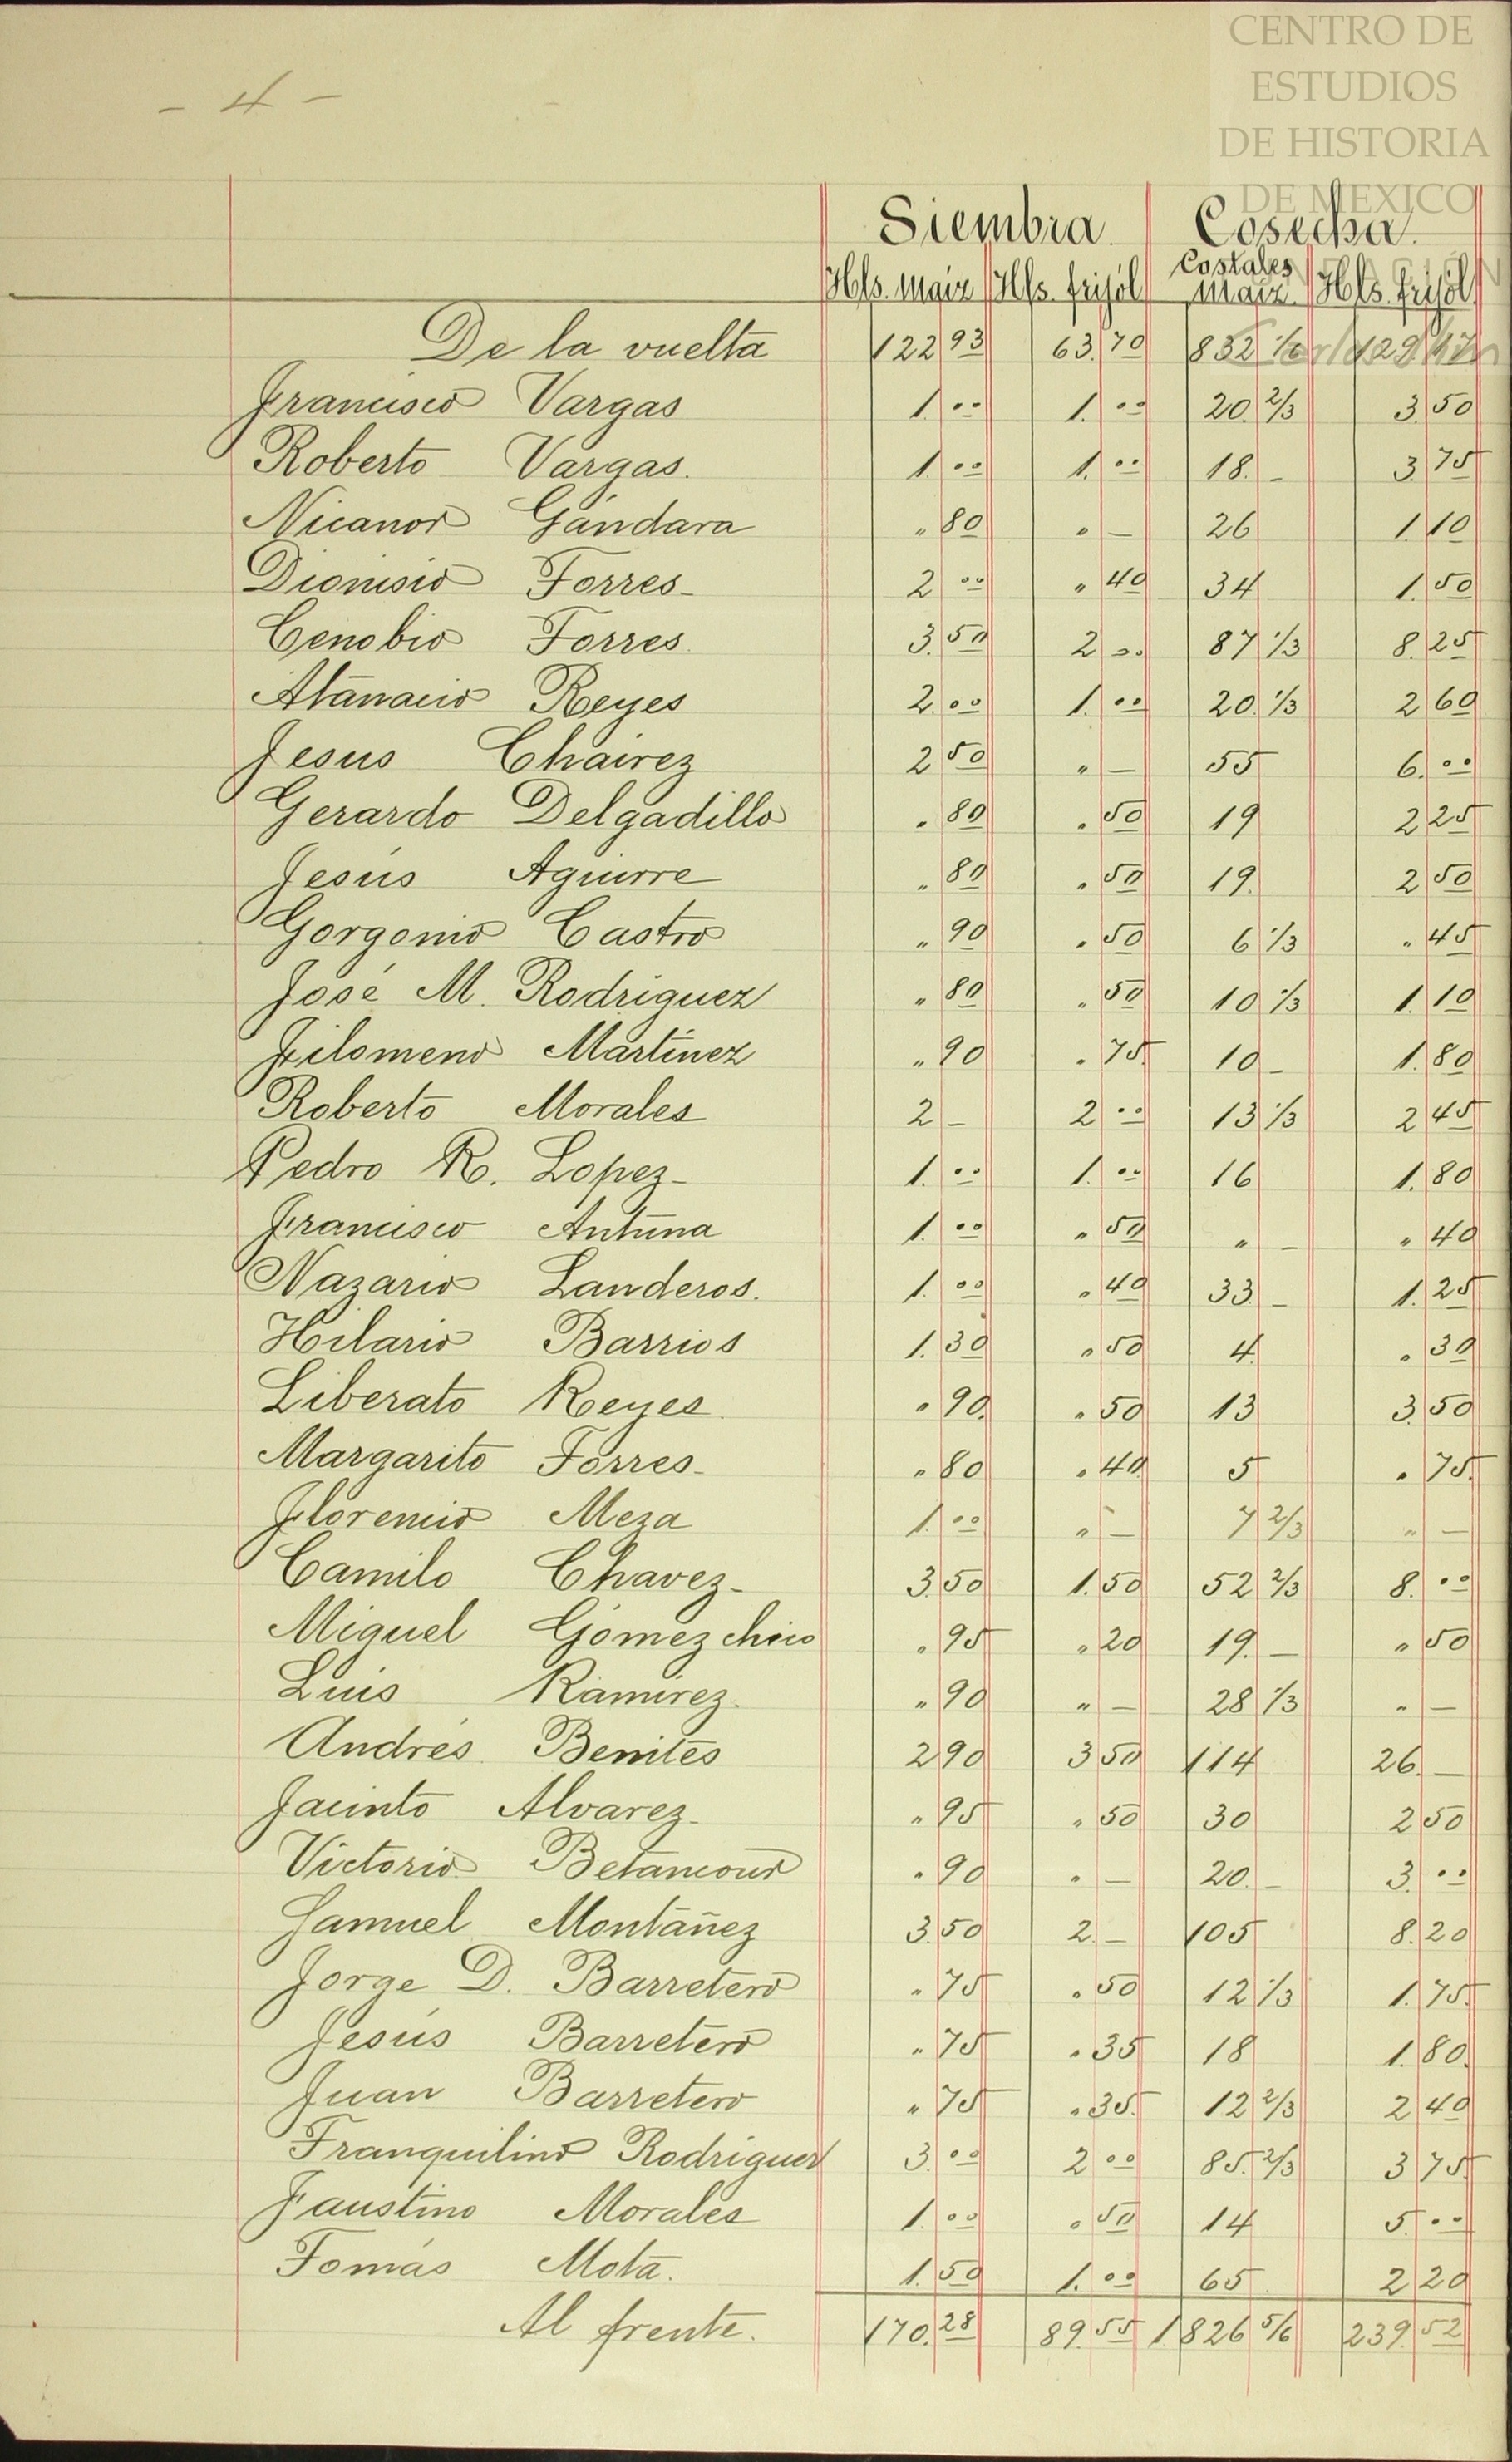 CENTRO DE
ESTUDIOS
DE HISTORIA
DE MEXICO
- 4 -
Siembra Cosecha
Hls. maiz Hls. frijol Costales maiz Hls. frijol
De la vuelta 122 93 63. 70 832 1/6 129 17
Francisco Vargas 1. 00 1. 00 20. 2/3 3. 50
Roberto Vargas. 1. 00 1. 00 18. - 3 75
Nicanor Gándara " 80 " - 26 1. 10
Dionisio Torres- 2 00 " 40 34 1. 50
Cenobio Torres. 3. 50 2 00 87 1/3 8. 25
Atanacio Reyes 2. 00 1. 00 20. 1/3 2 60
Jesus Chairez 2 50 " - 55 6. 00
Gerardo Delgadillo " 80 " 50 19 2 25
Jesús Aguirre " 80 " 50 19. 2 50
Gorgonio Castro " 90 " 50 6 1/3 " 45
José M. Rodriguez " 80 " 50 10 1/3 1. 10
Filomeno Martínez " 90 " 75. 10 - 1. 80
Roberto Morales 2 - 2 00 13 1/3 2 45
Pedro R. Lopez- 1. 00 1. 00 16 1. 80
Francisco Antuna 1. 00 " 50 " - " 40
Nazario Landeros. 1. 00 " 40 33 - 1. 25
Hilario Barrios 1. 30 " 50 4. " 30
Liberato Reyes. " 90. " 50 13 3. 50
Margarito Torres- " 80 " 40 5 " 75.
Florencio Meza 1. 00 " - 7 2/3 " -
Camilo Chavez- 3. 50 1. 50 52 2/3 8. 00
Miguel Gómez chico " 95 " 20 19. - " 50
Luis Ramírez. " 90 " - 28 1/3 " -
Andrés Benites 2 90 3 50 114 26. -
Jacinto Alvarez- " 95 " 50 30 2 50
Victorio Betancour " 90 " - 20. - 3. 00
Samuel Montañez 3. 50 2. - 105 8. 20
Jorge D. Barretero " 75 " 50 12 1/3 1. 75.
Jesús Barretero " 75 " 35 18 1. 80.
Juan Barretero " 75 " 35. 12 2/3 2 40
Tranquilino Rodriguez 3. 00 2 00 85. 2/3 3 75.
Faustino Morales 1. 00 " 50 14 5. 00
Tomás Mota. 1. 50 1. 00 65 2 20
Al frente. 170. 28 89. 55 1826 5/6 239. 52